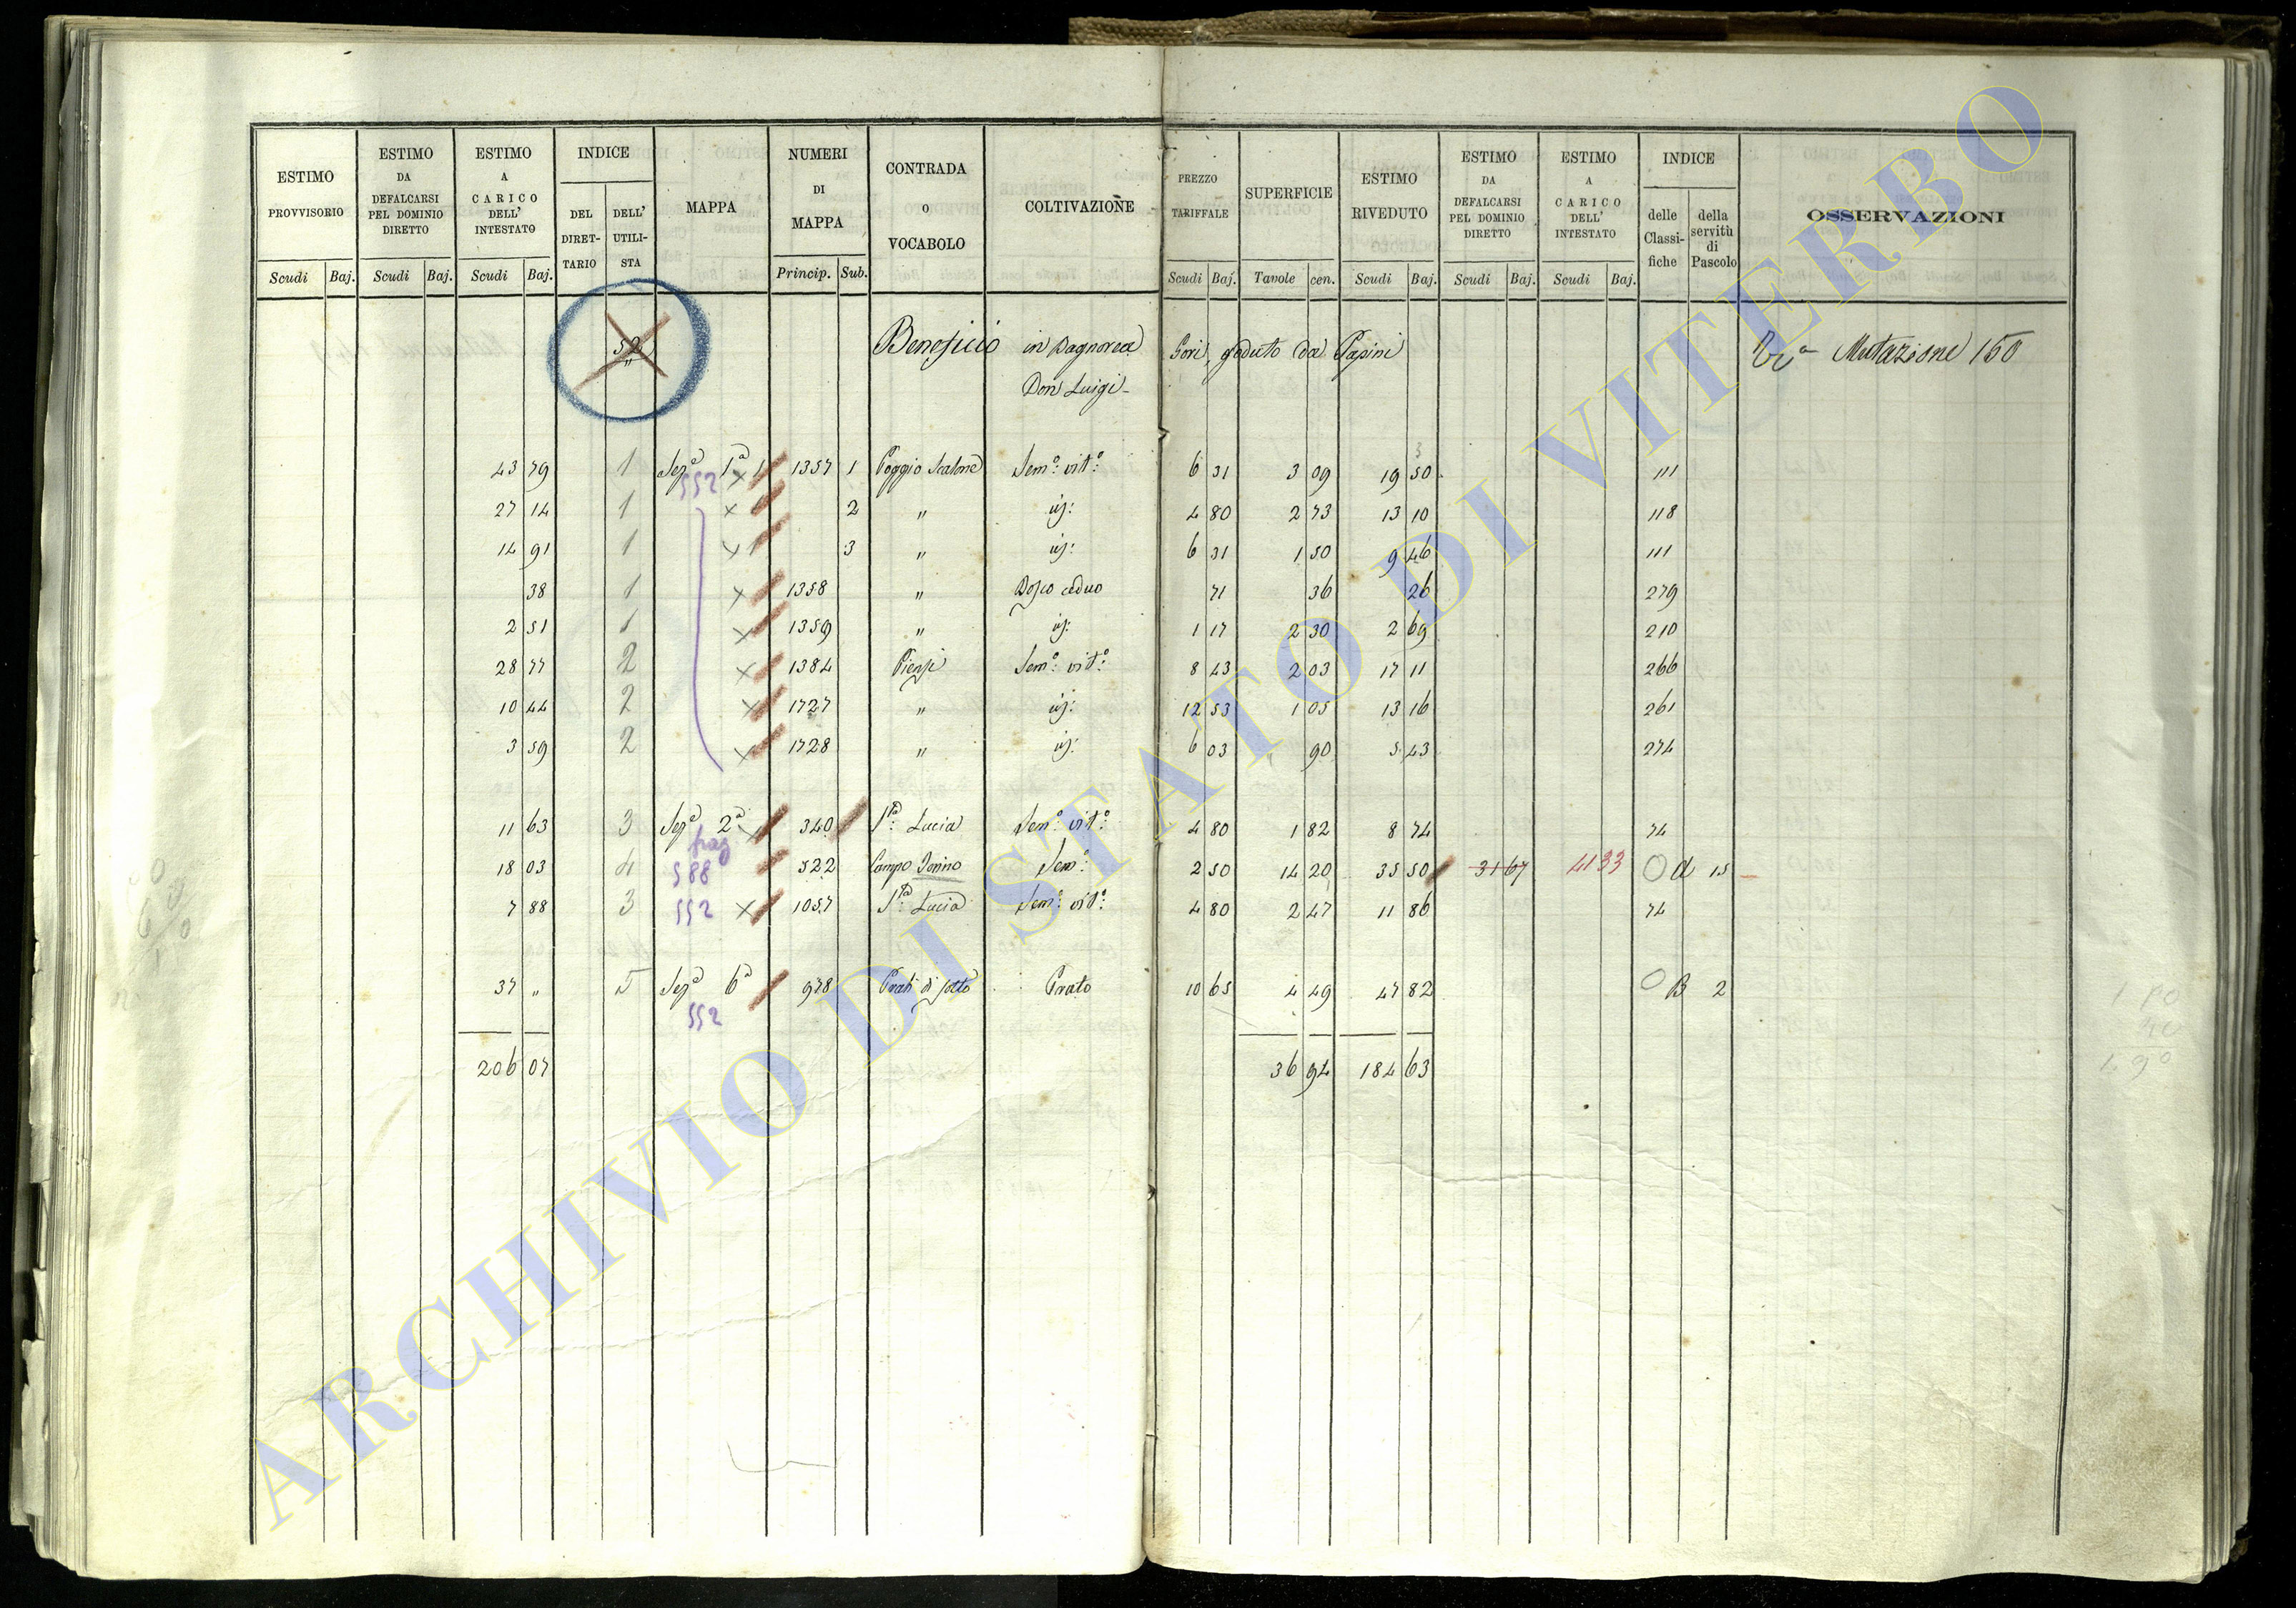 ESTIMO PROVVISORIO
ESTIMO DA DEFALCARSI PEL DOMINIO DIRETTO
ESTIMO A CARICO DELL' INTESTATO
INDICE
DEL DIRET- TARIO
DELL' UTILI- STA
MAPPA
NUMERI DI MAPPA
CONTRADA O VOCABOLO
COLTIVAZIONE
PREZZO TARIFFALE
SUPERFICIE
ESTIMO RIVEDUTO
ESTIMO DA DEFALCARSI PEL DOMINIO DIRETTO
ESTIMO A CARICO DELL' INTESTATO
INDICE
delle Classi- fiche
della servitù di Pascolo
OSSERVAZIONI
Scudi Baj. Scudi Baj. Scudi Baj. Princip. Sub. Scudi Baj. Tavole cen. Scudi Baj. Scudi Baj. Scudi Baj.
52 Beneficio in Bagnorea Gori, goduto da Papini Mutazione 150
Don Luigi
43 79 1 Sezᵉ 1ª 1357 1 Poggio Scalone Semᵒ: vitᵒ: 6 31 3 09 19 50 111
552
27 14 1 × 2 " id: 4 80 2 73 13 10 118
14 91 1 × 3 " id: 6 31 1 50 9 46 111
38 1 × 1358 " Bosco ceduo 71 36 26 279
2 51 1 × 1359 " id: 1 17 2 30 2 69 210
28 77 2 × 1384 Piensi Semᵒ: vitᵒ: 8 43 2 03 17 11 266
10 44 2 × 1727 " id: 12 53 1 05 13 16 261
3 59 2 × 1728 " id: 6 03 90 5 43 274
11 63 3 Sezᵉ 2ª 340 Sᵗᵃ: Lucia Semᵒ: vitᵒ: 4 80 1 82 8 74 74
fraz
18 03 4 588 522 Campo Semᵒ: 2 50 14 20 35 50 31 67 41 33 d 15
7 88 3 552 × 1057 Sᵗᵃ: Lucia Semᵒ: vitᵒ: 4 80 2 47 11 86 74
37 " 5 Sezᵉ 6ª 978 Prati di sotto Prato 10 65 4 49 47 82 B 2
552
206 07 36 94 184 63
1 90
ARCHIVIO DI STATO DI VITERBO